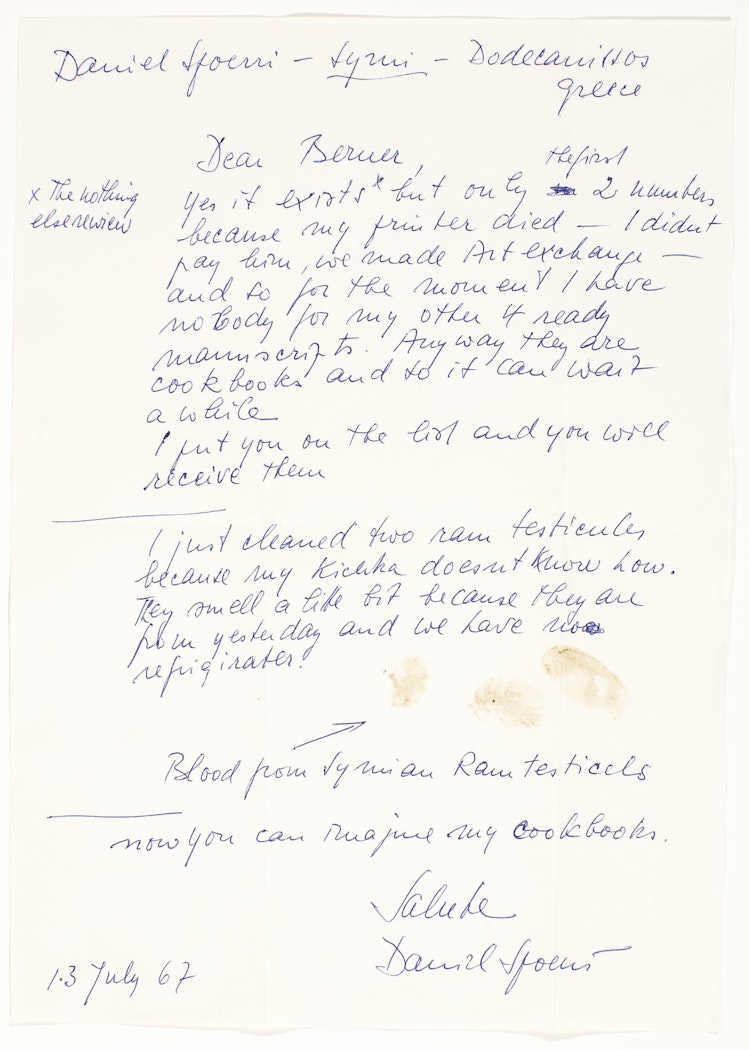 Daniel Spoerri – Symi – Dodecanissos
Greece
Dear Berner,
the first
x The nothing
else review
yes it exists x but only 2 numbers
because my printer died – I didnt
pay him, we made Art exchange –
and so for the moment I have
nobody for my other 4 ready
manuscripts. Anyway they are
cookbooks and so it can wait
a while
I put you on the list and you will
receive them
I just cleaned two ram testicules
because my Kichka doesnt know how.
They smell a litle bit because they are
from yesterday and we have no
refrigirater.
Blood from Symian Ram testicels
now you can imagine my cookbooks.
Salute
Daniel Spoerri
13 July 67